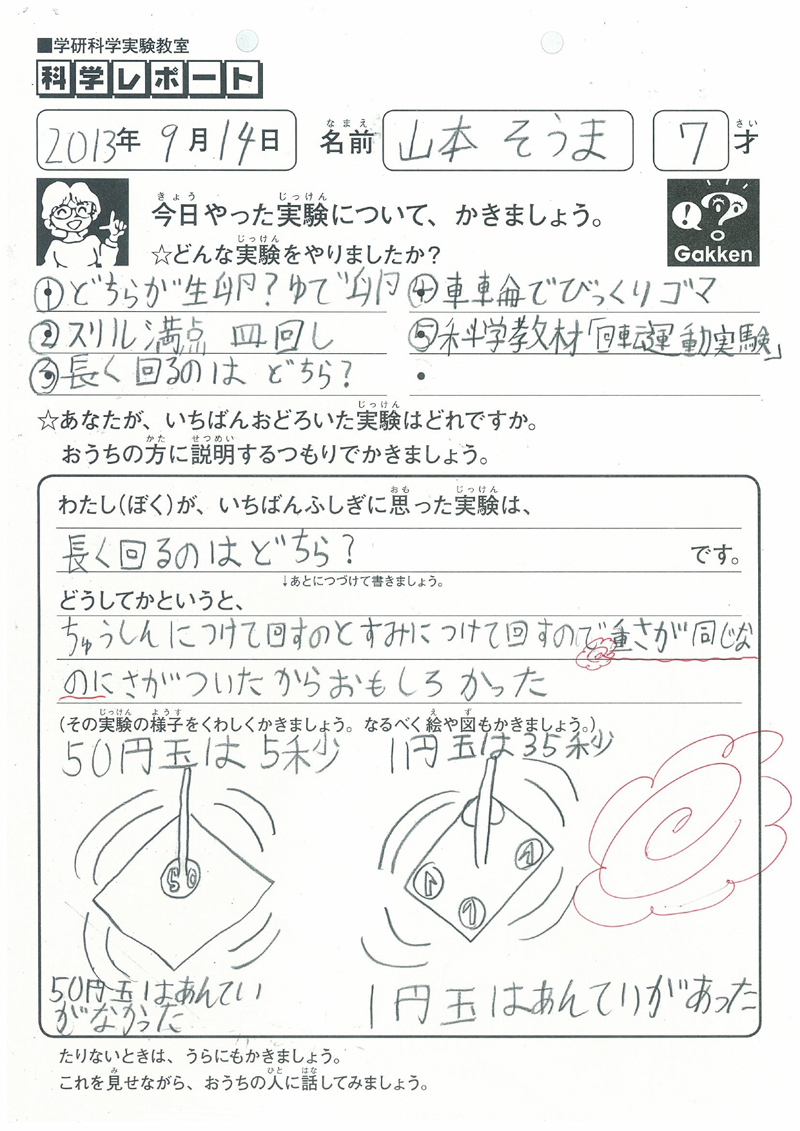 ■学研科学実験教室
科学レポート
2013年 9月14日 名前 山本 そうま 7才
今日やった実験について、かきましょう。
Gakken
☆どんな実験をやりましたか?
① どちらが生卵?ゆで卵
④ 車輪でびっくりゴマ
② スリル満点 皿回し
⑤ 科学教材「回転運動実験」
③ 長く回るのは どちら?
☆あなたが、いちばんおどろいた実験はどれですか。
おうちの方に説明するつもりでかきましょう。
わたし(ぼく)が、いちばんふしぎに思った実験は、
長く回るのはどちら? です。
↓あとにつづけて書きましょう。
どうしてかというと、
ちゅうしんにつけて回すのとすみにつけて回すので重さが同じな
のにさがついたからおもしろかった
(その実験の様子をくわしくかきましょう。なるべく絵や図もかきましょう。)
50円玉は5秒 1円玉は35秒
50
1 1 1
50円玉はあんてい
がなかった
1円玉はあんていがあった
たりないときは、うらにもかきましょう。
これを見せながら、おうちの人に話してみましょう。